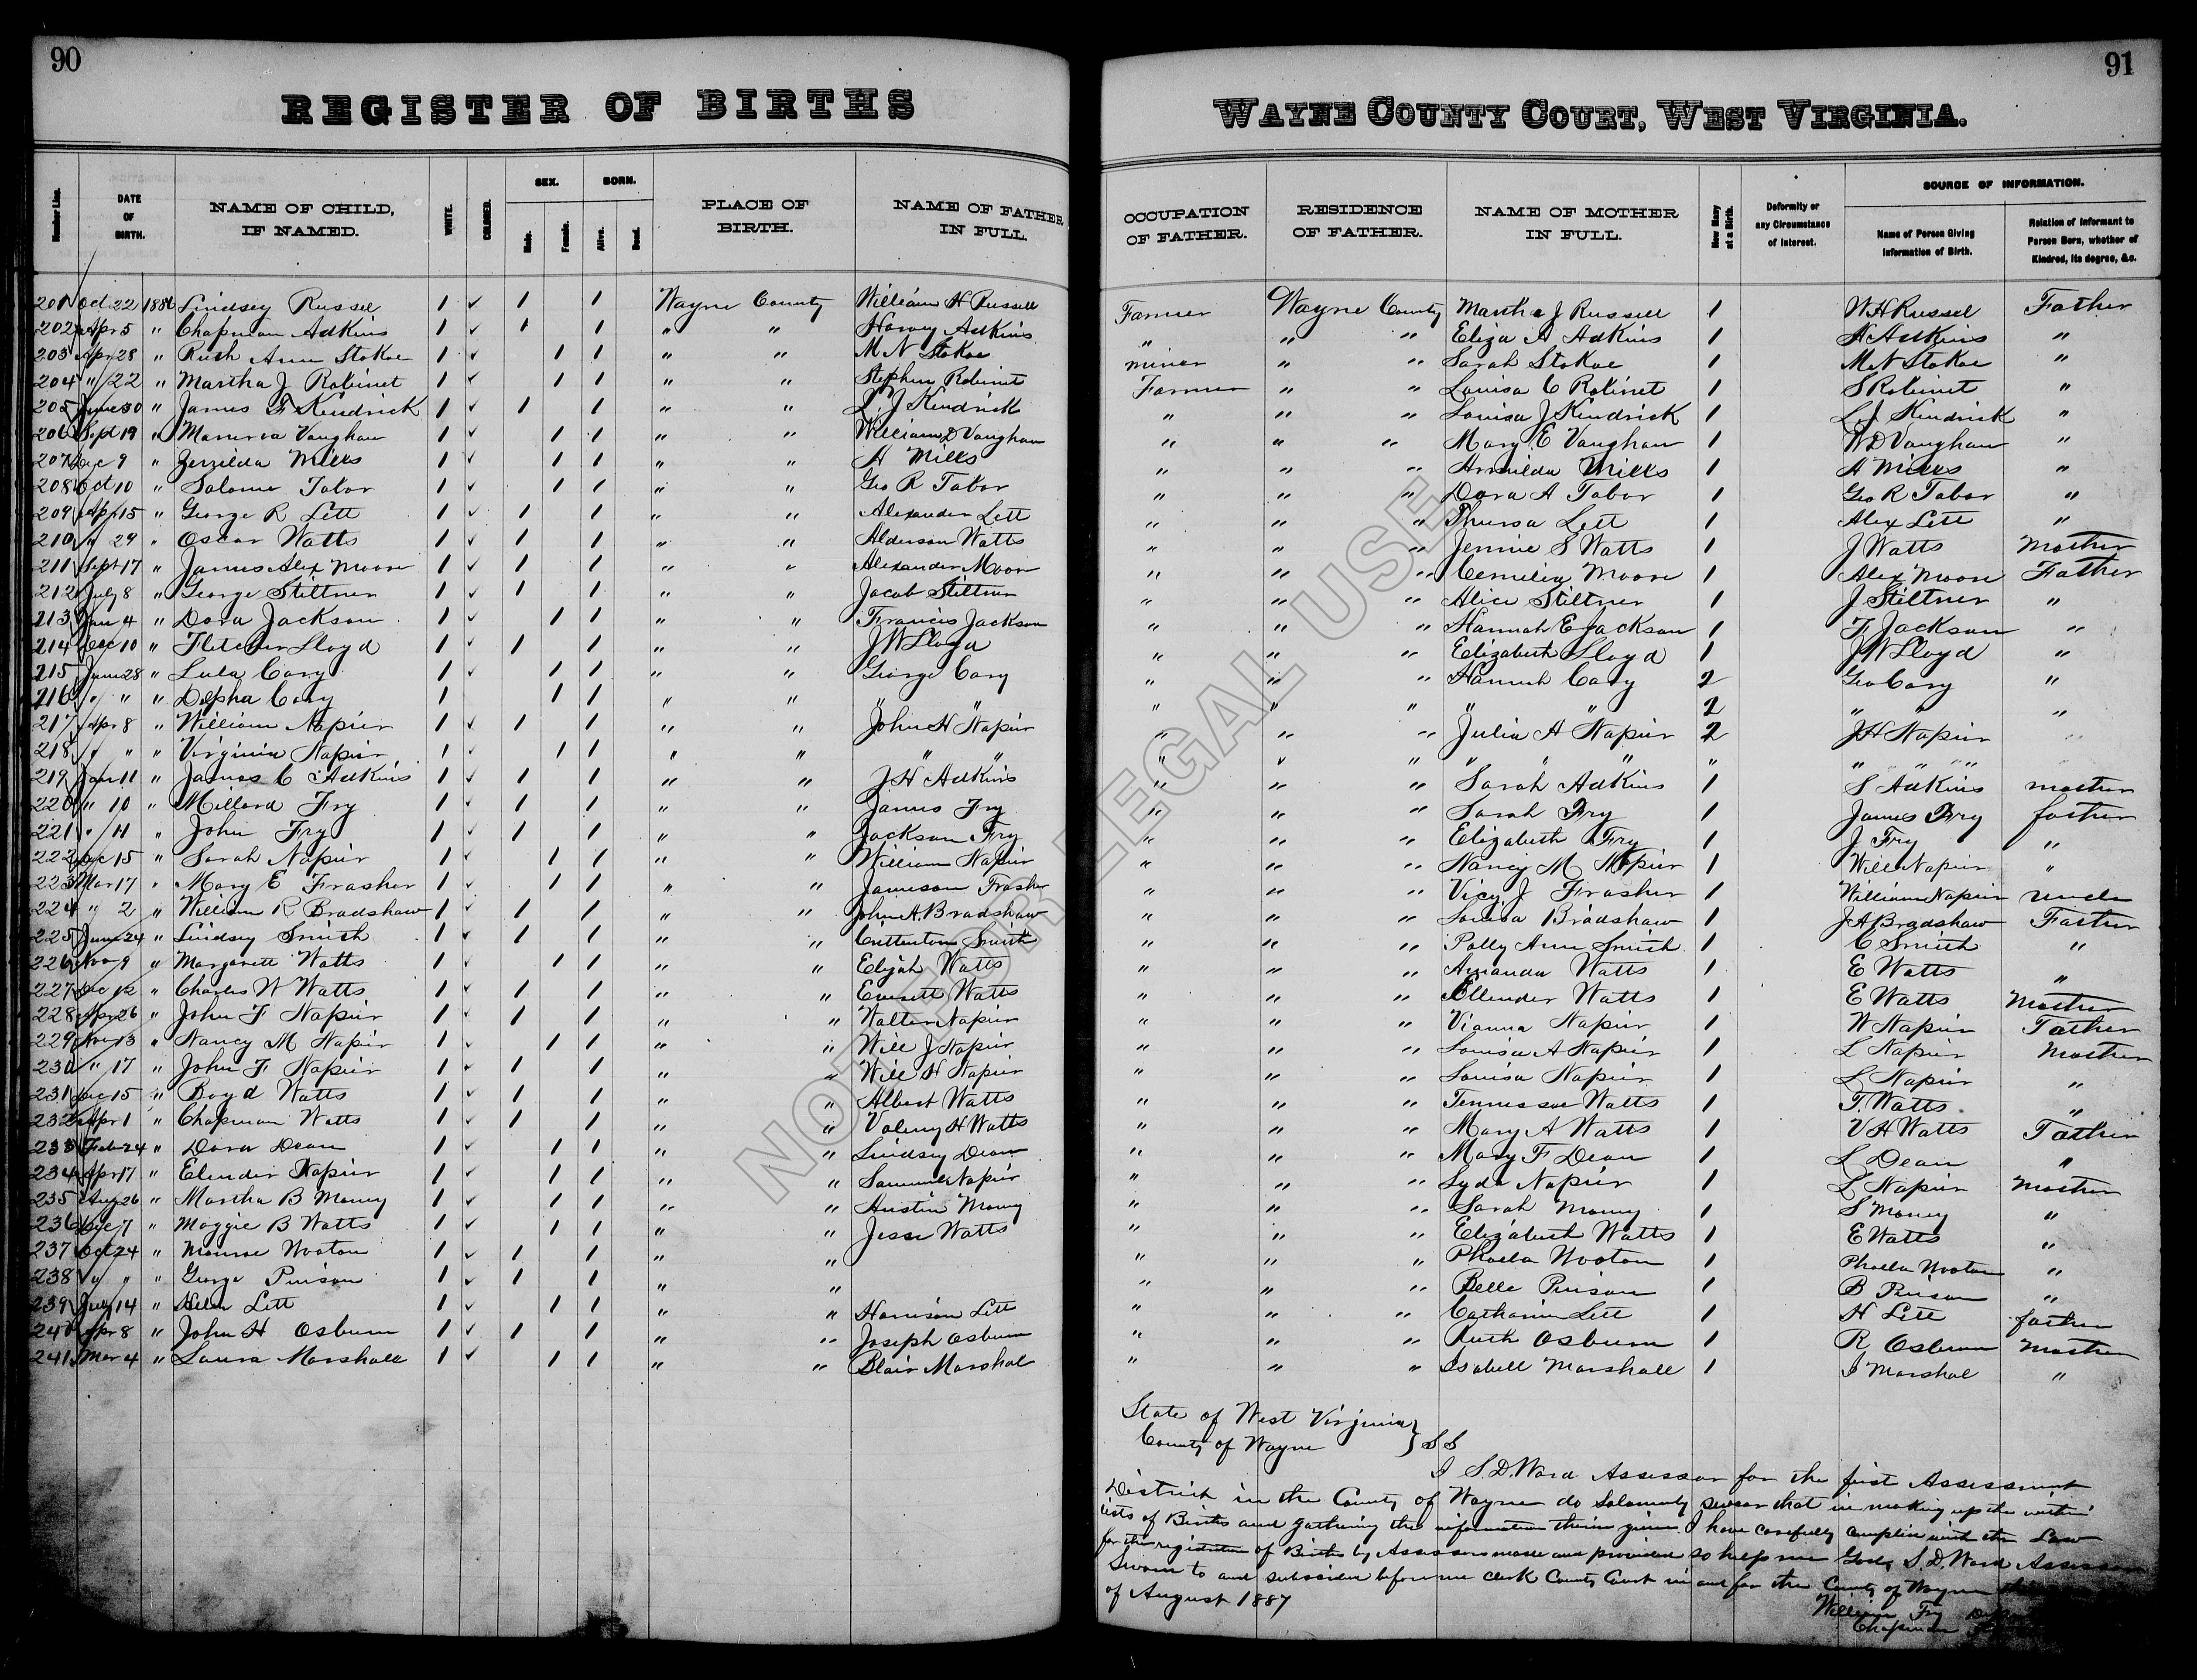 90
REGISTER OF BIRTHS
Number Line. DATE OF BIRTH. NAME OF CHILD, IF NAMED. WHITE. COLORED. SEX. Male. Female. BORN. Alive. Dead. PLACE OF BIRTH. NAME OF FATHER IN FULL.
201 Oct 22 1886 Lindsey Russel 1 ✓ 1 1 Wayne County William H Russell
202 Apr 5 " Chapman Adkins 1 ✓ 1 1 " " Harvey Adkins
203 Apr 28 " Ruth Ann Stokoe 1 ✓ 1 1 " " M N Stokoe
204 " 22 " Martha J Robinet 1 ✓ 1 1 " " Stephen Robinet
205 June 30 " James F Kendrick 1 ✓ 1 1 " " L. J Kendrick
206 Sept 19 " Manerva Vaughan 1 ✓ 1 1 " " William D Vaughan
207 Dec 9 " Zerzilda Mills 1 ✓ 1 1 " " A Mills
208 Oct 10 " Salome Tabor 1 ✓ 1 1 " " Geo R Tabor
209 Apr 15 " George R Lett 1 ✓ 1 1 " " Alexander Lett
210 " 29 " Oscar Watts 1 ✓ 1 1 " " Alderson Watts
211 Sept 17 " James Alex Moore 1 ✓ 1 1 " " Alexander Moor
212 July 8 " George Stiltner 1 ✓ 1 1 " " Jacob Stiltner
213 Jan 4 " Dora Jackson 1 ✓ 1 1 " " Francis Jackson
214 Dec 10 " Fletcher Lloyd 1 ✓ 1 1 " " J W Lloyd
215 June 28 " Lula Cary 1 ✓ 1 1 " " George Cary
216 " " " Depha Cary 1 1 1 " " " "
217 Apr 8 " William Napier 1 ✓ 1 1 " " John H Napier
218 " " " Virginia Napier 1 ✓ 1 1 " " " "
219 Jan 11 " James C Adkins 1 ✓ 1 1 " " J H Adkins
220 " 10 " Millard Fry 1 ✓ 1 1 " " James Fry
221 " 11 " John Fry 1 ✓ 1 1 " " Jackson Fry
222 Dec 15 " Sarah Napier 1 ✓ 1 1 " " William Napier
223 Mar 17 " Mary E Frasher 1 ✓ 1 1 " " Jameson Frasher
224 " 2 " William R Bradshaw 1 ✓ 1 1 " " John A. Bradshaw
225 June 24 " Lindsey Smith 1 ✓ 1 1 " " Crittenton Smith
226 Nov 9 " Margarett Watts 1 ✓ 1 1 " " Elijah Watts
227 Dec 12 " Charles W Watts 1 ✓ 1 1 " " Everett Watts
228 Apr 26 " John F Napier 1 ✓ 1 1 " " Walter Napier
229 Nov 13 " Nancy M Napier 1 ✓ 1 1 " " Will J Napier
230 " 17 " John F Napier 1 ✓ 1 1 " " Will H Napier
231 Dec 15 " Boyd Watts 1 ✓ 1 1 " " Albert Watts
232 Apr 1 " Chapman Watts 1 ✓ 1 1 " " Voleny H Watts
233 Feb 24 " Dora Dean 1 ✓ 1 1 " " Lindsey Dean
234 Apr 17 " Elender Napier 1 ✓ 1 1 " " Samuel Napier
235 Aug 26 " Martha B Money 1 ✓ 1 1 " " Austin Money
236 Dec 7 " Maggie B Watts 1 ✓ 1 1 " " Jesse Watts
237 Oct 24 " Monroe Wooton 1 ✓ 1 1 " "
238 " " " George Pinson 1 ✓ 1 1 " "
239 July 14 " Helen Lett 1 ✓ 1 1 " " Harrison Lett
240 Apr 8 " John H Osburn 1 ✓ 1 1 " " Joseph Osburn
241 Mar 4 " Laura Marshall 1 ✓ 1 1 " " Blair Marshal
91
WAYNE COUNTY COURT, WEST VIRGINIA.
OCCUPATION OF FATHER. RESIDENCE OF FATHER. NAME OF MOTHER IN FULL. How Many at a Birth. Deformity or any Circumstance of Interest. SOURCE OF INFORMATION. Name of Person Giving Information of Birth. Relation of Informant to Person Born, whether of Kindred, its degree, &c.
Farmer Wayne County Martha J Russell 1 W H Russel Father
" " " Eliza A Adkins 1 H Adkins "
miner " " Sarah Stokoe 1 M N Stokoe "
Farmer " " Louisa C Robinet 1 S Robinet "
" " " Louisa J Kendrick 1 L. J Kendrick "
" " " Mary E Vaughan 1 W D Vaughan "
" " " Armilda Mills 1 A Mills "
" " " Dora A Tabor 1 Geo R Tabor "
" " " Thursa Lett 1 Alex Lett "
" " " Jennie S Watts 1 J Watts Mother
" " " Cemilia Moore 1 Alex Moore Father
" " " Alice Stiltner 1 J Stiltner "
" " " Hannah E Jackson 1 F Jackson "
" " " Elizabeth Lloyd 1 J W Lloyd "
" " " Hannah Cary 2 Geo Cary "
" " " " " 2 " " "
" " " Julia A Napier 2 J H Napier "
" " " " " " " " "
" " " Sarah Adkins 1 S Adkins mother
" " " Sarah Fry 1 James Fry father
" " " Elizabeth Fry 1 J Fry "
" " " Nancy M Napier 1 Will Napier "
" " " Vicy J Frasher 1 William Napier uncle
" " " Louisa Bradshaw 1 J A Bradshaw Father
" " " Polly Ann Smith 1 C Smith "
" " " Amanda Watts 1 E Watts "
" " " Ellender Watts 1 E Watts Mother
" " " Vianna Napier 1 W Napier Father
" " " Louisa A Napier 1 L Napier Mother
" " " Louisa Napier 1 L Napier "
" " " Tennessee Watts 1 T. Watts "
" " " Mary A Watts 1 V H Watts Father
" " " Mary F Dean 1 L Dean "
" " " Lyda Napier 1 L Napier Mother
" " " Sarah Money 1 S Money "
" " " Elizabeth Watts 1 E Watts "
" " " Phoela Wooton 1 Phoela Wooton "
" " " Belle Pinson 1 B Pinson "
" " " Catharine Lett 1 H Lett father
" " " Ruth Osburn 1 R Osburn Mother
" " " Isabell Marshall 1 I Marshal "
State of West Virginia
County of Wayne } S S
I S. D. Ward Assessor for the first Assessment
District in the County of Wayne do Solomnly swear that in making up the within
lists of Births and gathering the information therin given I have carefully complied with the Law
for the registration of Births by Assessors made and provided so help me God, S. D. Ward Assessor
Sworn to and subscribed before me Clerk County Court in and for the County of Wayne
of August 1887
William Fry
Chapman
NOT FOR LEGAL USE